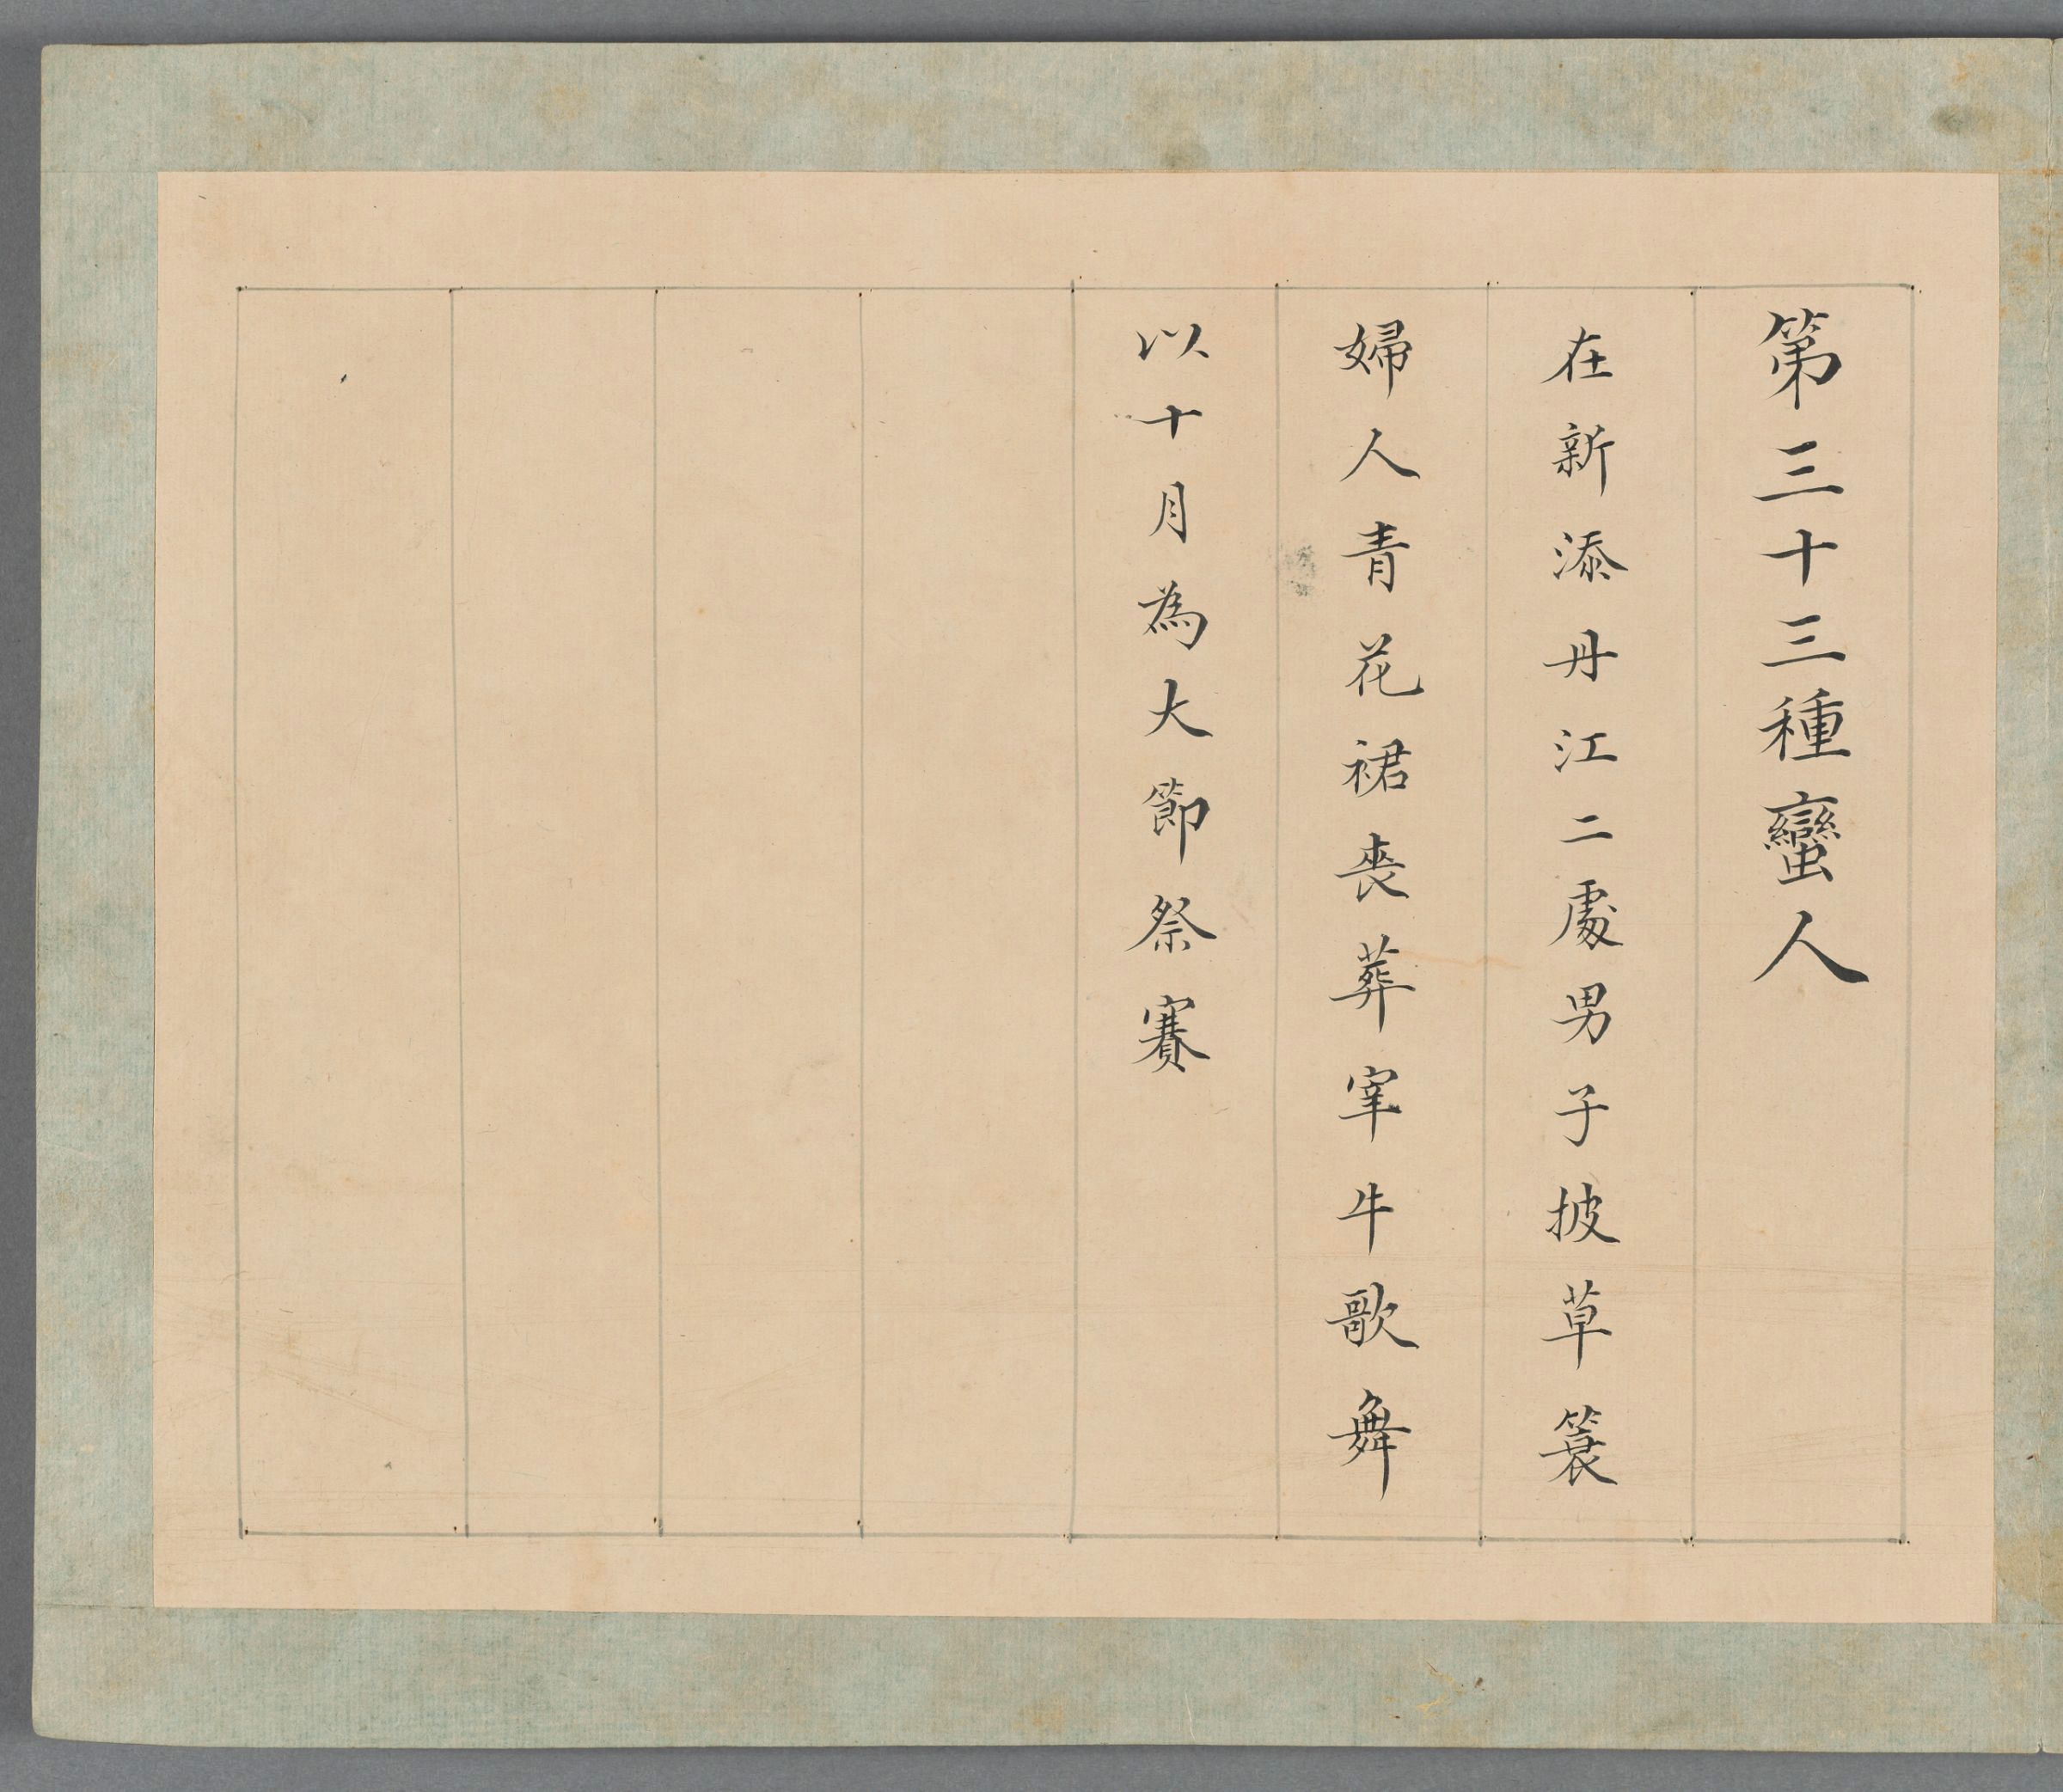 第三十三種蠻人
在新添丹江二處男子披草簑
婦人青花裙喪葬宰牛歌舞
以十月為大節祭賽